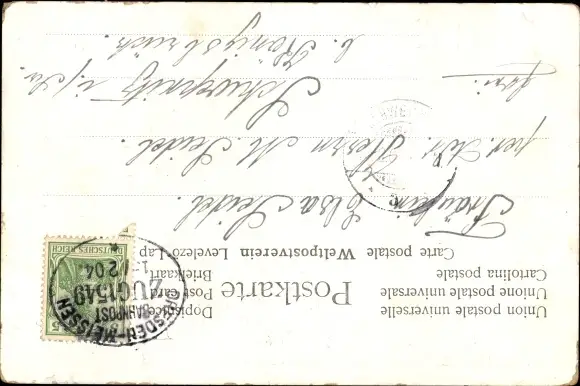 Postkarte
Union postale universelle
Unione postale universale
Cartolina postale
Carte postale Weltpostverein Levelező-Lap
Dopisnice
Post card
Briefkaart
DEUTSCHES REICH
5
DRESDEN-MEISSEN
BAHNPOST
ZUG 1549
2 04
Fräulein Elsa Seidel.
per. Adr. Herrn M. Seidel.
Schwepnitz i/Sa.
b. Königsbrück.